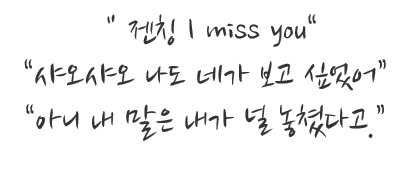 " 젠칭 I miss you"
"샤오샤오 나도 네가 보고 싶었어"
"아니 내 말은 내가 널 놓쳤다고."